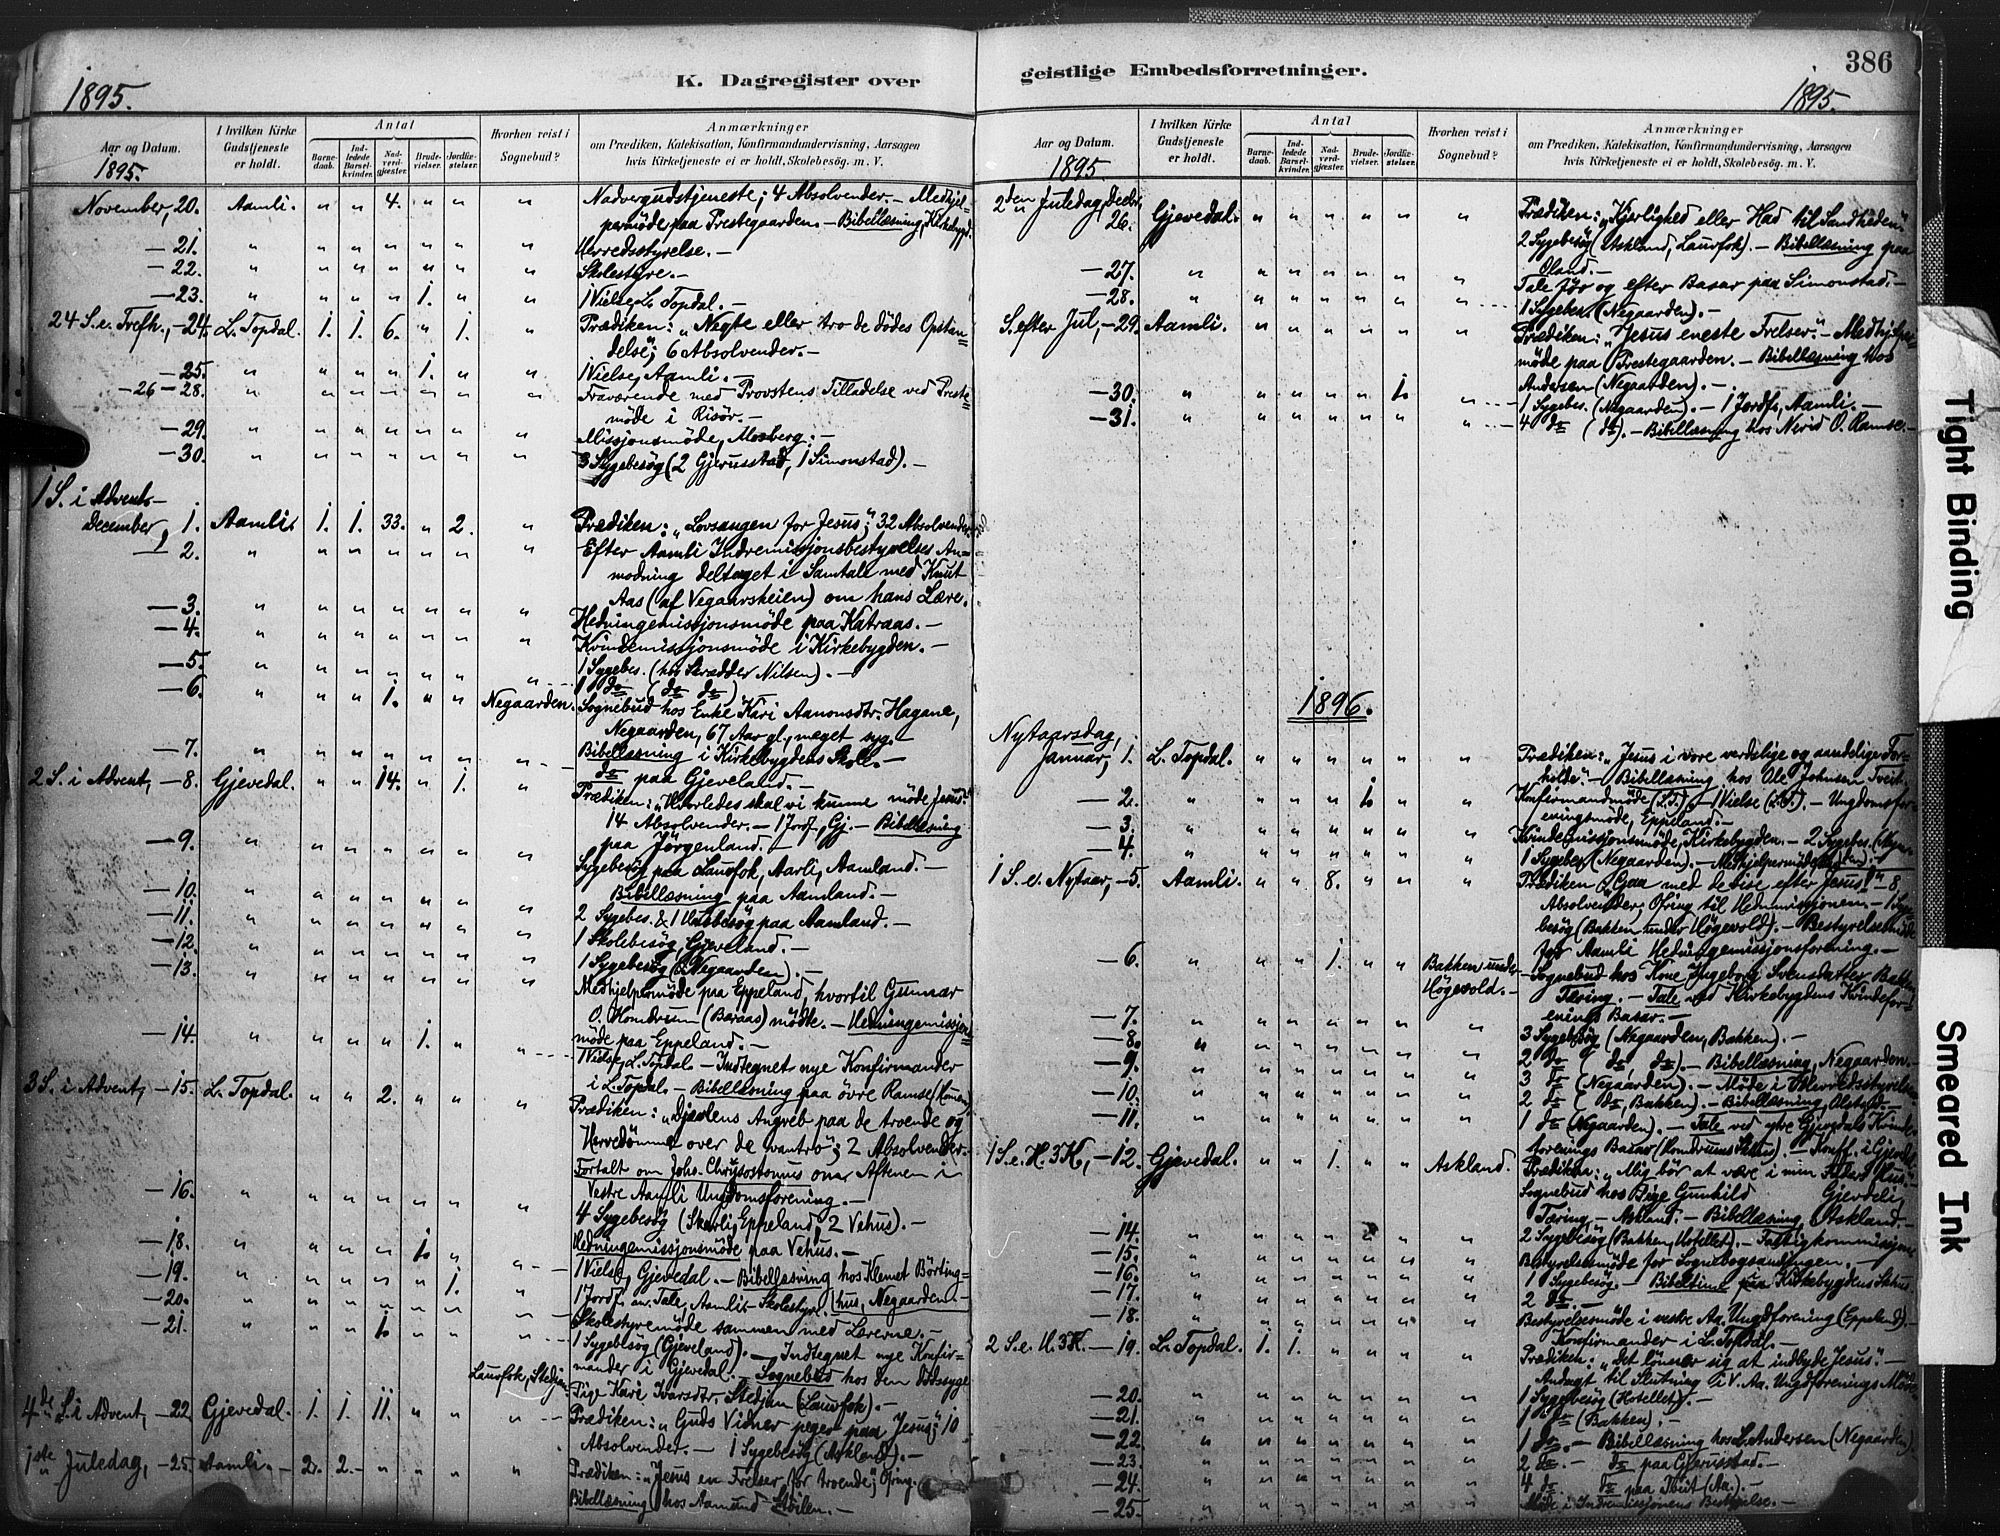 386
K. Dagregister over
geistlige Embedsforretninger.
1895.
1895.
Aar og Datum.
1895.
I hvilken Kirke Gudstjeneste er holdt.
Antal
Barne-daab.
Ind-ledede Barsel-kvinder.
Nad-verd-gjæster.
Brude-vielser.
Jordfæ-stelser.
Hvorhen reist i Sognebud?
Anmærkninger
om Prædiken, Katekisation, Konfirmandundervisning, Aarsagen
hvis Kirketjeneste ei er holdt, Skolebesög. m. V.
November, 20. Aamli. " " 4. " " " Nadvergudstjeneste; 4 Absolvender. – Medhjel-
permöde paa Prestegaarden. – Bibellæsning, Kirkebygd.
– 21. " " " " " " " Herredsstyrelse. –
– 22. " " " " " " " Skolestyre. –
– 23. " " " " 1. " " 1 Vielse, L. Topdal. –
24 S. e. Trefh., – 24. L. Topdal. 1. 1. 6. " 1. " Prædiken: „Negte eller tro de dödes Opstan-
delse"; 6 Absolvender. –
– 25. " " " " 1. " " 1 Vielse, Aamli. –
– 26 – 28. " " " " " " " Fraværende med Provstens Tilladelse ved Preste-
möde i Risör. –
– 29. " " " " " " " Missjonsmöde, Mosberg. –
– 30. " " " " " " " 3 Sygebesög (2 Gjerusstad, 1 Simonstad). –
1 S. i Advent –
December, 1. Aamli. 1. 1. 33. " 2. " Prædiken: „Lovsangen for Jesus"; 32 Absolvender.
– 2. " " " " " " " Efter Aamli Indremissjonsbestyrelses An-
modning deltaget i Samtale med Knut
Aas (af Vegaarsheien) om hans Lære.
– 3. " " " " " " " Hedningemissjonsmöde paa Katraas. –
– 4. " " " " " " " Kvindemissjonsmöde i Kirkebygden. –
– 5. " " " " " " " 1 Sygebes. (hos Skrædder Nilsen). –
1 do (do do)
– 6. " " " 1. " " Negaarden. Sognebud hos Enke Kari Aanonsdtr. Hagane,
Negaarden, 67 Aar gl., meget syg. –
– 7. " " " " " " " Bibellæsning i Kirkebygdens Skoll. –
do paa Gjeveland. –
2 S. i Advent, – 8. Gjevedal. " " 14. " 1. " Prædiken: „Hvorledes skal vi kunne möde Jesus?"
14 Absolvender. – 1 Jordf., Gj. – Bibellæsning
paa Jörgenland. –
– 9. " " " " " " " Sygebesög paa Lauvfok, Aarli, Aamland. –
Bibellæsning paa Aamland. –
– 10. " " " " " " " 2 Sygebes. & 1 Husbesög paa Aamland. –
– 11. " " " " " " " 1 Skolebesög, Gjeveland. –
– 12. " " " " " " " 1 Sygebesög (Negaarden). –
– 13. " " " " " " " Medhjelpermöde paa Eppeland, hvortil Gunnar
O. Homdrum (Baraas) mödte. – Hedningemissjons-
möde paa Eppeland. –
– 14. " " " " 1. " " 1 Vielse, L. Topdal. – Indtegnet nye Konfirmander
i L. Topdal. – Bibellæsning paa övre Ramse (Konen).
3 S. i Advent, – 15. L. Topdal. " " 2. " " " Prædiken: „Djævlens Angreb paa de troende og
Herredömme over de vantro"; 2 Absolvender.
Fortalt om Joh. Chrysostomus om Aftenen i
Vestre Aamli Ungdomsforening. –
– 16. " " " " " " " 4 Sygebesög (Skarli, Eppeland, 2 Vehus). –
Hedningemissjonsmöde paa Vehus. –
– 18. " " " " 1. " " 1 Vielse, Gjevedal. – Bibellæsning hos Klemet Börting-
hus, Negaarden. –
– 19. " " " " " 1. " 1 Jordf. m. Tale, Aamli. – Skolestyre.
– 20. " " " " " " " Skolestyremöde sammen med Lærerne. –
– 21. " " " 1. " " Lauvfok, Stedjan. 1 Sygebesög (Gjeveland). – Indtegnet nye Konfir-
mander i Gjevedal. – Sognebud hos den dödssyge
Pige Kari Ivarsdtr. Stedjan (Lauvfok). –
4de S. i Advent, – 22. Gjevedal. 1. 1. 11. " " " Prædiken: „Guds Vidner peger paa Jesus"; 10
Absolvender. – 1 Sygebesög (Askland). –
1ste Juledag, – 25. Aamli. – 2. 2. – " " " Prædiken: „Jesus en Frelser for troende"; Ofring.
Bibellæsning hos Aamund Stöilen. –
Aar og Datum.
1895.
I hvilken Kirke Gudstjeneste er holdt.
Antal
Barne-daab.
Ind-ledede Barsel-kvinder.
Nad-verd-gjæster.
Brude-vielser.
Jordfæ-stelser.
Hvorhen reist i Sognebud?
Anmærkninger
om Prædiken, Katekisation, Konfirmandundervisning, Aarsagen
hvis Kirketjeneste ei er holdt, Skolebesög. m. V.
2den Juledag, Decbr. 26. Gjevedal. " " " " " " Prædiken: „Kjærlighed eller Had til Sandheden."
2 Sygebesög (Askland, Lauvfok). – Bibellæsning paa
Öland. –
– 27. " " " " " " " Tale för og efter Basar paa Simonstad. –
– 28. " " " " " " " 1 Sygebes. (Negaarden). –
S. efter Jul, – 29. Aamli. " " " " " " Prædiken: „Jesus eneste Frelser". – Medhjelper-
möde paa Prestegaarden. – Bibellæsning hos
Andersen (Negaarden). –
– 30. " " " " " 1. " 1 Sygebes. (Negaarden). – 1 Jordf., Aamli. –
– 31. " " " " " " " 4 do (do). – Bibellæsning hos O. Ramse. –
1896.
Nytaarsdag,
Januar, 1. L. Topdal. " " " " " " Prædiken: „Jesus i vore verdslige og aandelige For-
holde". – Bibellæsning hos Ole Johnsen Tveit.
– 2. " " " " 1. " " Konfirmandmöde (L.T.). – 1 Vielse (L.T.). – Ungdomsfor-
eningsmöde, Eppeland. –
– 3. " " " " " " " Kvindemissjonsmöde, Kirkebygden. – 2 Sygebes.
– 4. " " " " " " " 1 Sygebes. (Negaarden). – Medhjelpermöde
1 S. e. Nytaar, – 5. Aamli. " " 8. " " " Prædiken „Gaa med de vise efter Jesus!" – 8
Absolvender; Ofring til Hedn.missjonen. – 1 Syge-
besög (Bakken under Högevold). – Bestyrelsesmöde
for Aamli Hedningemissjonsforening. –
– 6. " " " 1. " " Bakken under Högevold. – Sognebud hos Kone Ingeborg Svensdatter Bakken,
Tæring. – Tale ved Kirkebygdens Kvindefor-
enings Basar. –
– 7. " " " " " " " 3 Sygebesög (Negaarden, Bakken). –
– 8. " " " " " " " 2 do (do, do). – Bibellæsning, Negaarden.
– 9. " " " " " " " 3 do (Negaarden). – Möde i Herredsstyrelse
– 10. " " " " " " " 2 do (do, Bakken). – Bibellæsning, Ölstad. –
– 11. " " " " " " " 1 do (Negaarden). – Tale ved ytre Gjevdals Kvinde-
forenings Basar (Homdrums Skhus). – Konf. i Gjevedal.
1 S. e. H. 3 K., – 12. Gjevedal. " " 1. " " Askland. Prædiken: „Mig bör at være i min Faders Hus."
Sognebud hos Pige Gunhild Gjevdeli,
Tæring, – Askland. – Bibellæsning, Askland. –
– 14. " " " " " " 2 Sygebesög (Bakken, Hotellet). – Fattigkommissjon
– 15. " " " " " " " Bestyrelsesmöde for Sognebogsamlingen. –
– 16. " " " " " " " 1 Sygebesög. – Bibeltime paa Kirkebygdens Skhus.
– 17. " " " " " " " 2 do. –
– 18. " " " " " " " Bestyrelsesmöde i vestre Aa. Ungdforening (Eppeland). –
Konfirmander i L. Topdal. –
2 S. e. H. 3 K. – 19. L. Topdal. 1. 1. " " " " Prædiken: „Det lönner sig at indbyde Jesus". –
Andagt til Slutning i V. Aa. Ungdforenings Möde
– 20. " " " " " " " 1 Sygebesög (Hotellet). –
– 21. " " " " " " " 1 do (Bakken). –
– 22. " " " " " " " 1 do. – Bibellæsning hos L. Andersen (Negaarden).
– 23. " " " " " " " 2 do. – do paa Gjerusstad. –
– 24. " " " " " " " 4 do. do paa Tveit (Aa.). –
– 25. " " " " " " " Möde i Indremissjonens Bestyrelse. –
Tight Binding
Smeared Ink